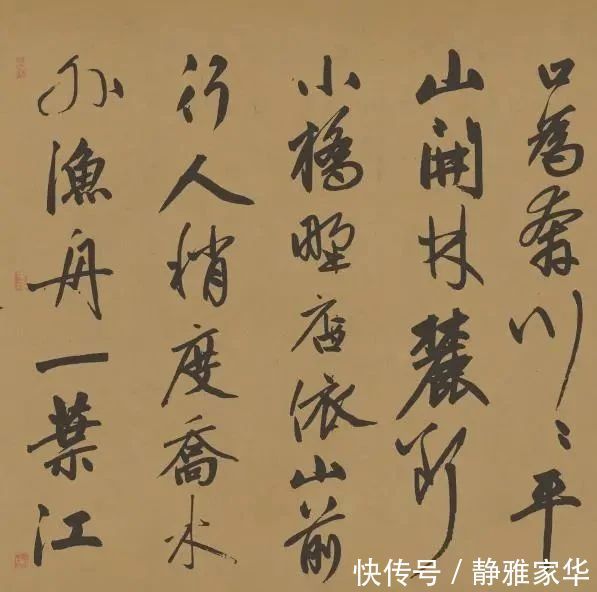 口為奔川〻平
山開林麓斷
小橋野店依山前
行人稍度喬木
外漁舟一葉江
快传号 / 静雅家华